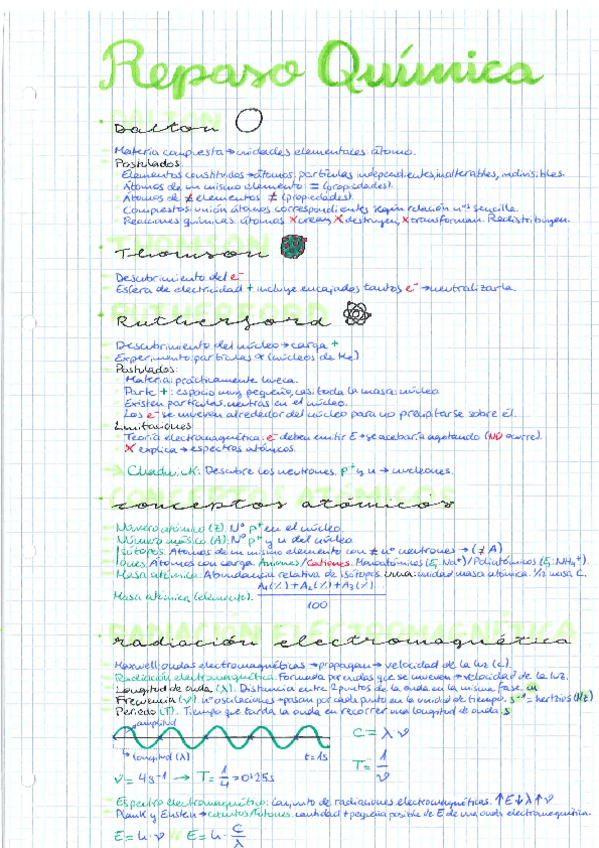 Repaso Química
Dalton
Materia compuesta → unidades elementales átomo.
Postulados:
Elementos constituidos → átomos: partículas independientes, inalterables, indivisibles.
Átomos de un mismo elemento = (propiedades).
Átomos de ≠ elementos ≠ (propiedades).
Compuestos: unión átomos correspondientes según relación nos sencilla.
Reacciones químicas: átomos X crean, X destruyen, X transforman. Redistribuyen.
Thomson
Descubrimiento del e-
Esfera de electricidad + incluye encajados tantos e- → neutralizarla.
Rutherford
Descubrimiento del núcleo → carga +
Experimento: partículas α (núcleos de He)
Postulados:
Materia: prácticamente hueca.
Parte +: espacio muy pequeño, casi toda la masa: núcleo
Existen partículas neutras en el núcleo.
Los e- se mueven alrededor del núcleo para no precipitarse sobre él.
Limitaciones
Teoría electromagnética: e- deben emitir E → se acabaría agotando (NO ocurre).
X explica → espectros atómicos.
→ Chadwick: Descubre los neutrones. p+ y n → nucleones.
conceptos atómicos
Número atómico (Z): Nº p+ en el núcleo
Número másico (A): Nº p+ y n del núcleo
Isótopos: Átomos de un mismo elemento con ≠ nº neutrones → (≠ A)
Iones: Átomos con carga. Aniones/Cationes. Monoatómicos (Ej: Na+)/Poliatómicos (Ej: NH4+)
Masa atómica: Abundancia relativa de isótopos. uma: unidad masa atómica. 1/12 masa C.
Masa atómica (elemento): A1(%)+A2(%)+A3(%)
100
radiación electromagnética
Maxwell: ondas electromagnéticas → propagan → velocidad de la luz (c).
Radiación electromagnética: Formada por ondas que se mueven → velocidad de la luz.
Longitud de onda (λ). Distancia entre 2 puntos de la onda en la misma fase. m
Frecuencia (ν). nº oscilaciones → pasan por cada punto en la unidad de tiempo. s-1 = hertzios (Hz)
Periodo (T). Tiempo que tarda la onda en recorrer una longitud de onda. s
amplitud
C = λ ν
longitud (λ) t=1s
T = 1/ν
ν = 4s-1 → T = 1/4 = 0'25s
Espectro electromagnético: Conjunto de radiaciones electromagnéticas. ↑E ↓λ ↑ν
Plank y Einsten → cuantos/fotones. cantidad + pequeña posible de E de una onda electromagnética.
E = h · ν // E = h · C/λ